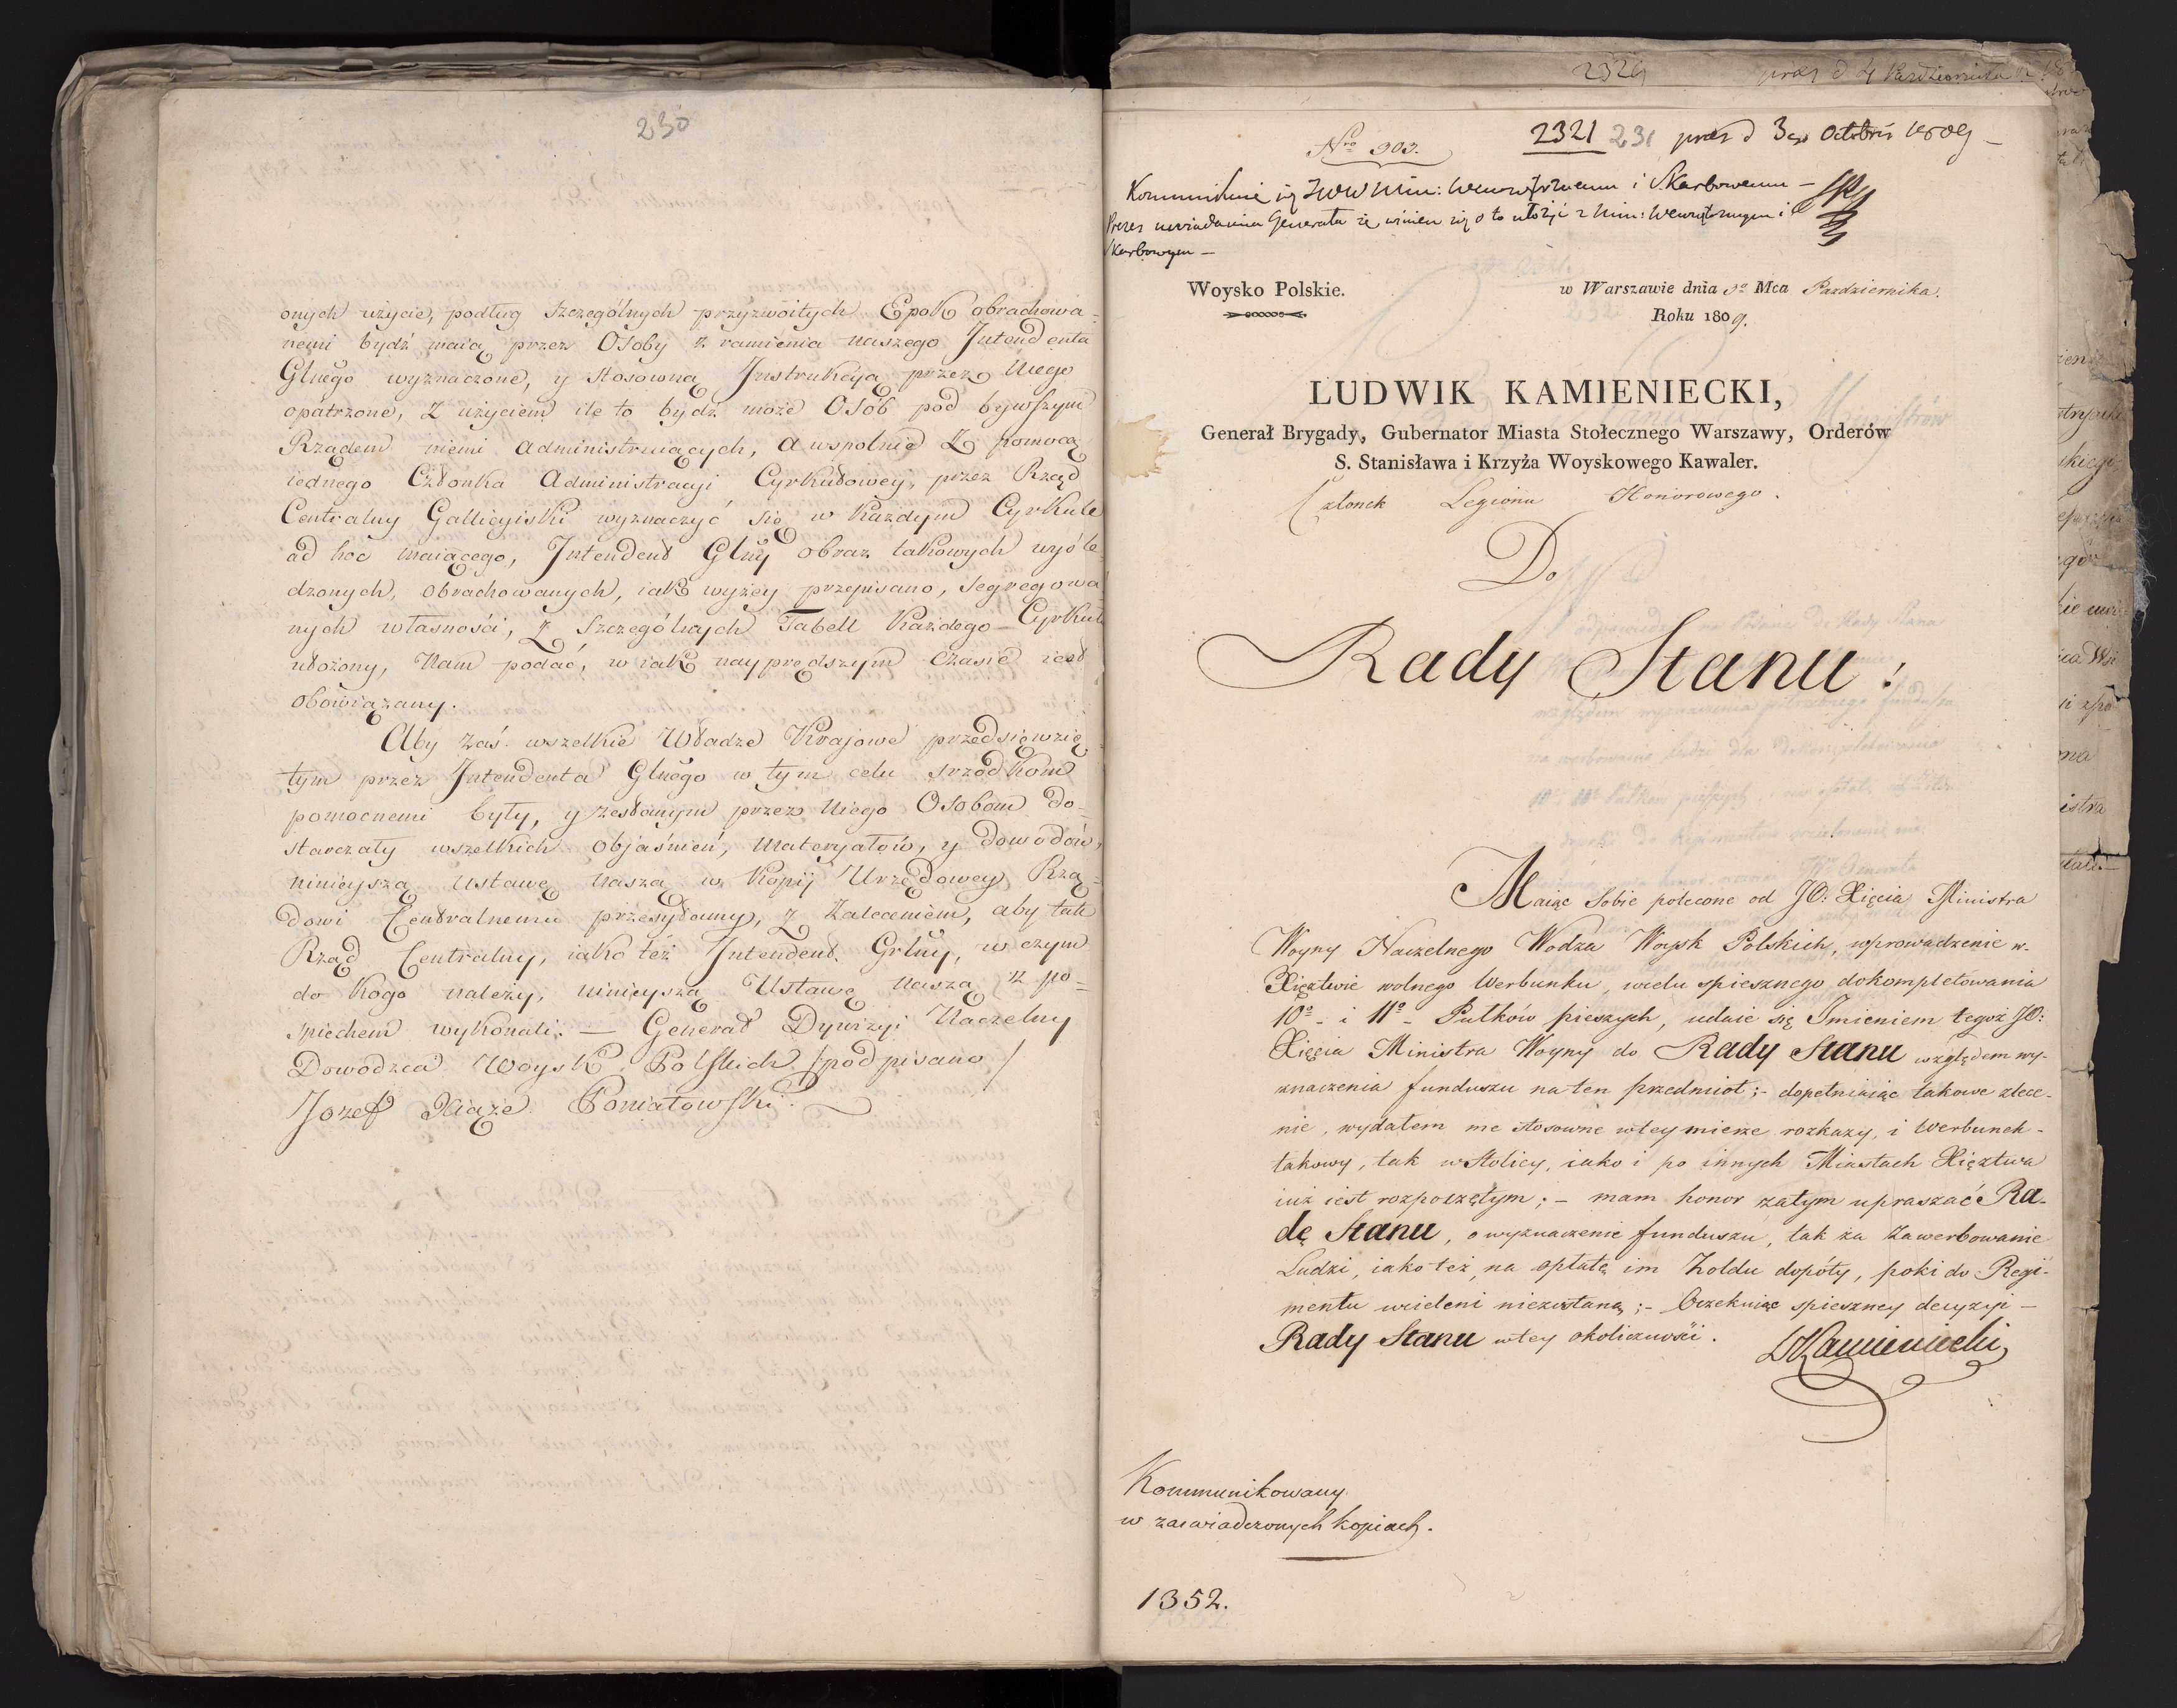 230
onych użycie, podług szczególnych przyzwoitych Epok obrachowa-
nemi bydź maią przez Osoby z ramienia naszego Intendenta
Glnego wyznaczone, y stosowną Instrukcyą przez Niego
opatrzone, z użyciem ile to bydź może Osób pod bywszym
Rządem niemi administruiących, a wspolnie z pomocą
iednego Członka Administracyi Cyrkułowey, przez Rząd
Centralny Gallicyiski wyznaczyć się w Każdym Cyrkule
ad hoc maiącego, Intendent Glny obraz takowych wyśle-
dzonych, obrachowanych, iak wyżey przepisano, segregowa
nych własności, z szczególnych Tabell Każdego Cyrkułu
ułożony, Nam podać, w iak nayprędszym Czasie iest
obowiązany.
Aby zaś wszelkie Władze Krajowe przedsięwzię
tym przez Intendenta Glnego w tym celu srzodkom
pomocnemi były, y zesłanym przez Niego Osobom do-
starczały wszelkich objaśnień, Materyałów, y dowodów,
ninieyszą Ustawę Naszą w Kopij Urzędowey Rzą-
dowi Centralnemu przesyłamy, z Zaleceniem, aby tak
Rząd Centralny, iako też Intendent Grlny, w czym
do Kogo należy, ninieyszą Ustawę Naszą z po-
spiechem wykonali. — Generał Dywizyi Naczelny
Dowodzca Woysk Polskich /podpisano/
Jozef Xiąże Poniatowski.
2324 praes d 4 Pazdziernika
Nro 903.
2321 231 praes d 3go Octobris 1809 —
Kommunikuie się JWW Min: Wewnętrznemu i Skarbowemu —
Prezes uwiadamia Generała że winien się o to ułożyć z Min: Wewnętrznym i
Skarbowym —
Woysko Polskie.
w Warszawie dnia Mca Pazdziernika.
Roku 1809.
LUDWIK KAMIENIECKI,
Generał Brygady, Gubernator Miasta Stołecznego Warszawy, Orderów
S. Stanisława i Krzyża Woyskowego Kawaler.
Członek Legionu Honorowego.
Do
Rady Stanu!
Maiąc sobie polecone od JO: Xięcia Ministra
Woyny Naczelnego Wodza Woysk Polskich, wprowadzenie w
Xięztwie wolnego Werbunku, w celu spiesznego dokompletowania
10o i 11o Pułków pieszych, udaie się Jmieniem tegoż JO:
Xięcia Ministra Woyny do Rady Stanu względem wy-
znaczenia funduszu na ten przedmiot; - dopełniaiąc takowe zlece-
nie, wydałem me stosowne w tey mierze rozkazy, i Werbunek -
takowy, tak w Stolicy, iako i po innych Miastach Xięztwa
iuż iest rozpoczętym; - mam honor zatym upraszać Ra-
dę Stanu, o wyznaczenie funduszu, tak za Zawerbowanie
Ludzi, iako też na opłatę im Żołdu dopóty, poki do Regi-
mentu wcieleni niezostaną; - Oczekuiąc spieszney decyzyi —
Rady Stanu w tey okoliczności.
LKamieniecki
Kommunikowany
w zaswiadczonych kopiach.
1352.